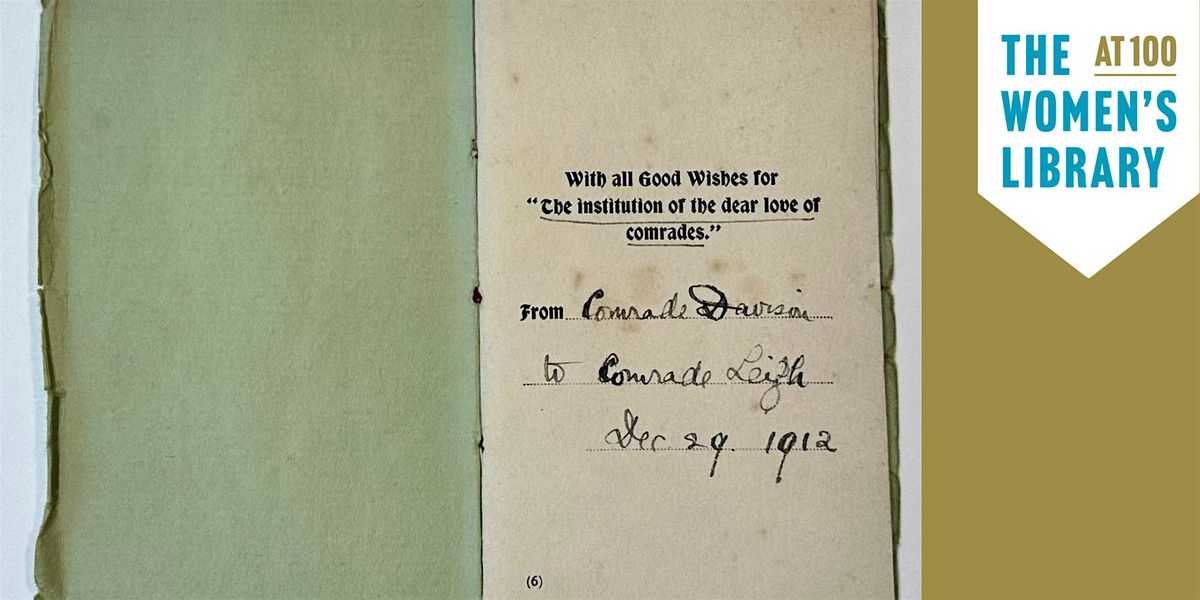 With all Good Wishes for
“The institution of the dear love of
comrades.”
From Comrade Davison
to Comrade Leigh
Dec. 29. 1912
(6)
THE AT 100
WOMEN'S
LIBRARY